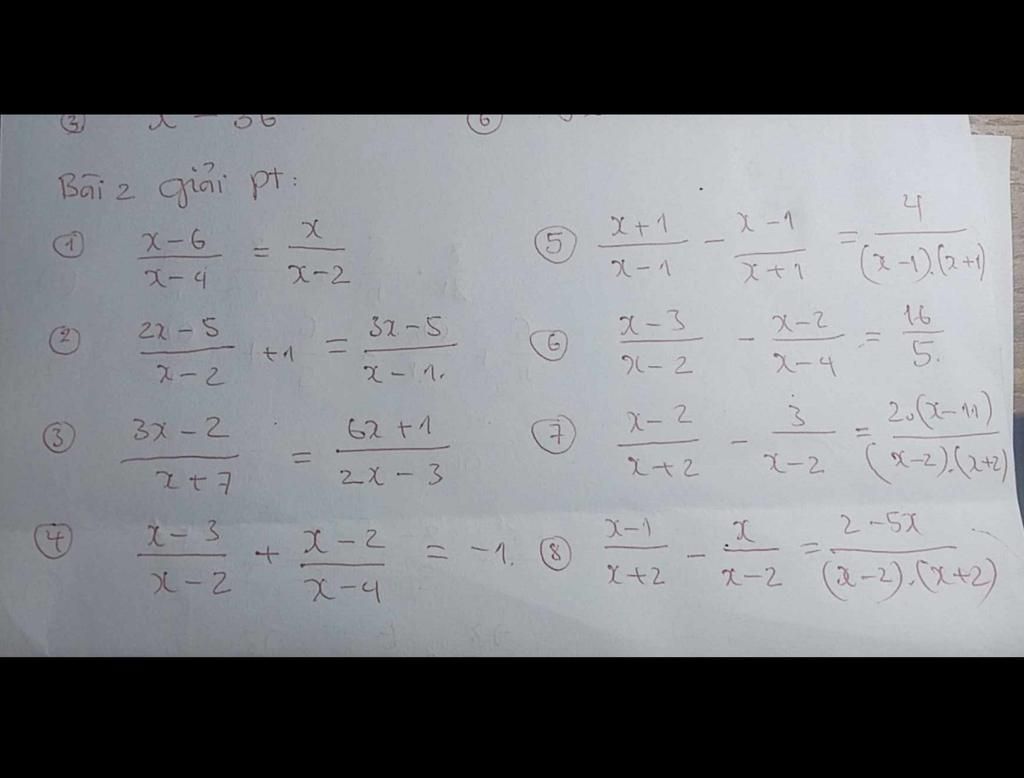 ③ x - 36
⑥
Bài 2 giải pt:
① \frac{x-6}{x-4} = \frac{x}{x-2}
② \frac{2x-5}{x-2} +1 = \frac{3x-5}{x-1}.
③ \frac{3x-2}{x+7} = \frac{6x+1}{2x-3}
④ \frac{x-3}{x-2} + \frac{x-2}{x-4} = -1.
⑤ \frac{x+1}{x-1} - \frac{x-1}{x+1} = \frac{4}{(x-1).(x+1)}
⑥ \frac{x-3}{x-2} - \frac{x-2}{x-4} = \frac{16}{5}.
⑦ \frac{x-2}{x+2} - \frac{3}{x-2} = \frac{2.(x-11)}{(x-2).(x+2)}
⑧ \frac{x-1}{x+2} - \frac{x}{x-2} = \frac{2-5x}{(x-2).(x+2)}